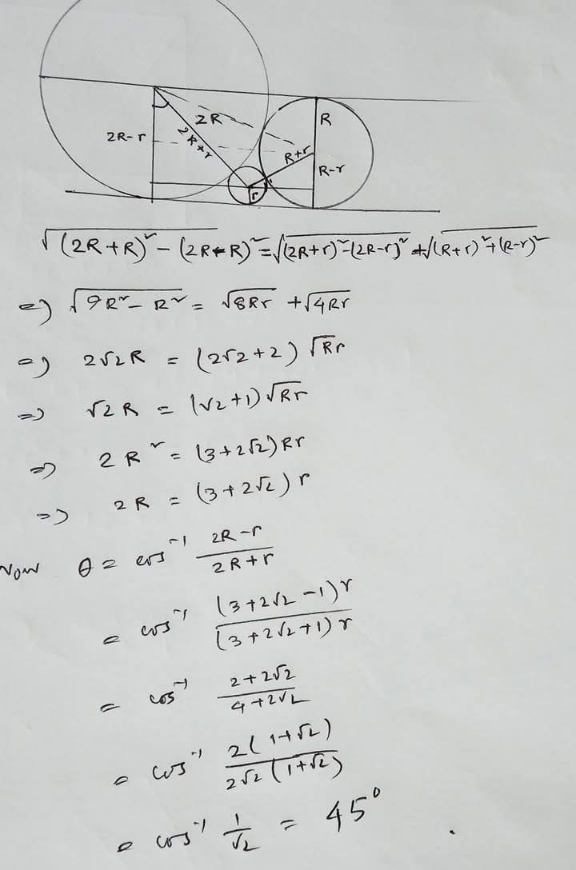 2R
R
2R-r
2R+r
R+r
R-r
r
√(2R+R)² - (2R-R)² = √(2R+r)²-(2R-r)² + √(R+r)²+(R-r)²
=) √9R²- R² = √8Rr + √4Rr
=) 2√2R = (2√2+2) √Rr
=) √2 R = (√2+1) √Rr
=) 2R² = (3+2√2) Rr
=) 2R = (3+2√2) r
Now θ = cos⁻¹ (2R-r)/(2R+r)
= cos⁻¹ ((3+2√2-1)r)/((3+2√2+1)r)
= cos⁻¹ (2+2√2)/(4+2√2)
= cos⁻¹ (2(1+√2))/(2√2(1+√2))
= cos⁻¹ 1/√2 = 45°.